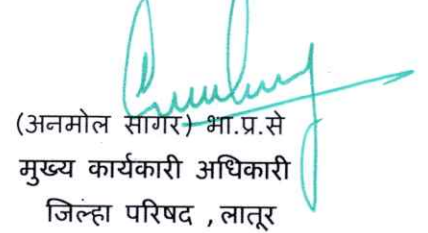 (अनमोल सागर) भा.प्र.से
मुख्य कार्यकारी अधिकारी
जिल्हा परिषद ,लातूर